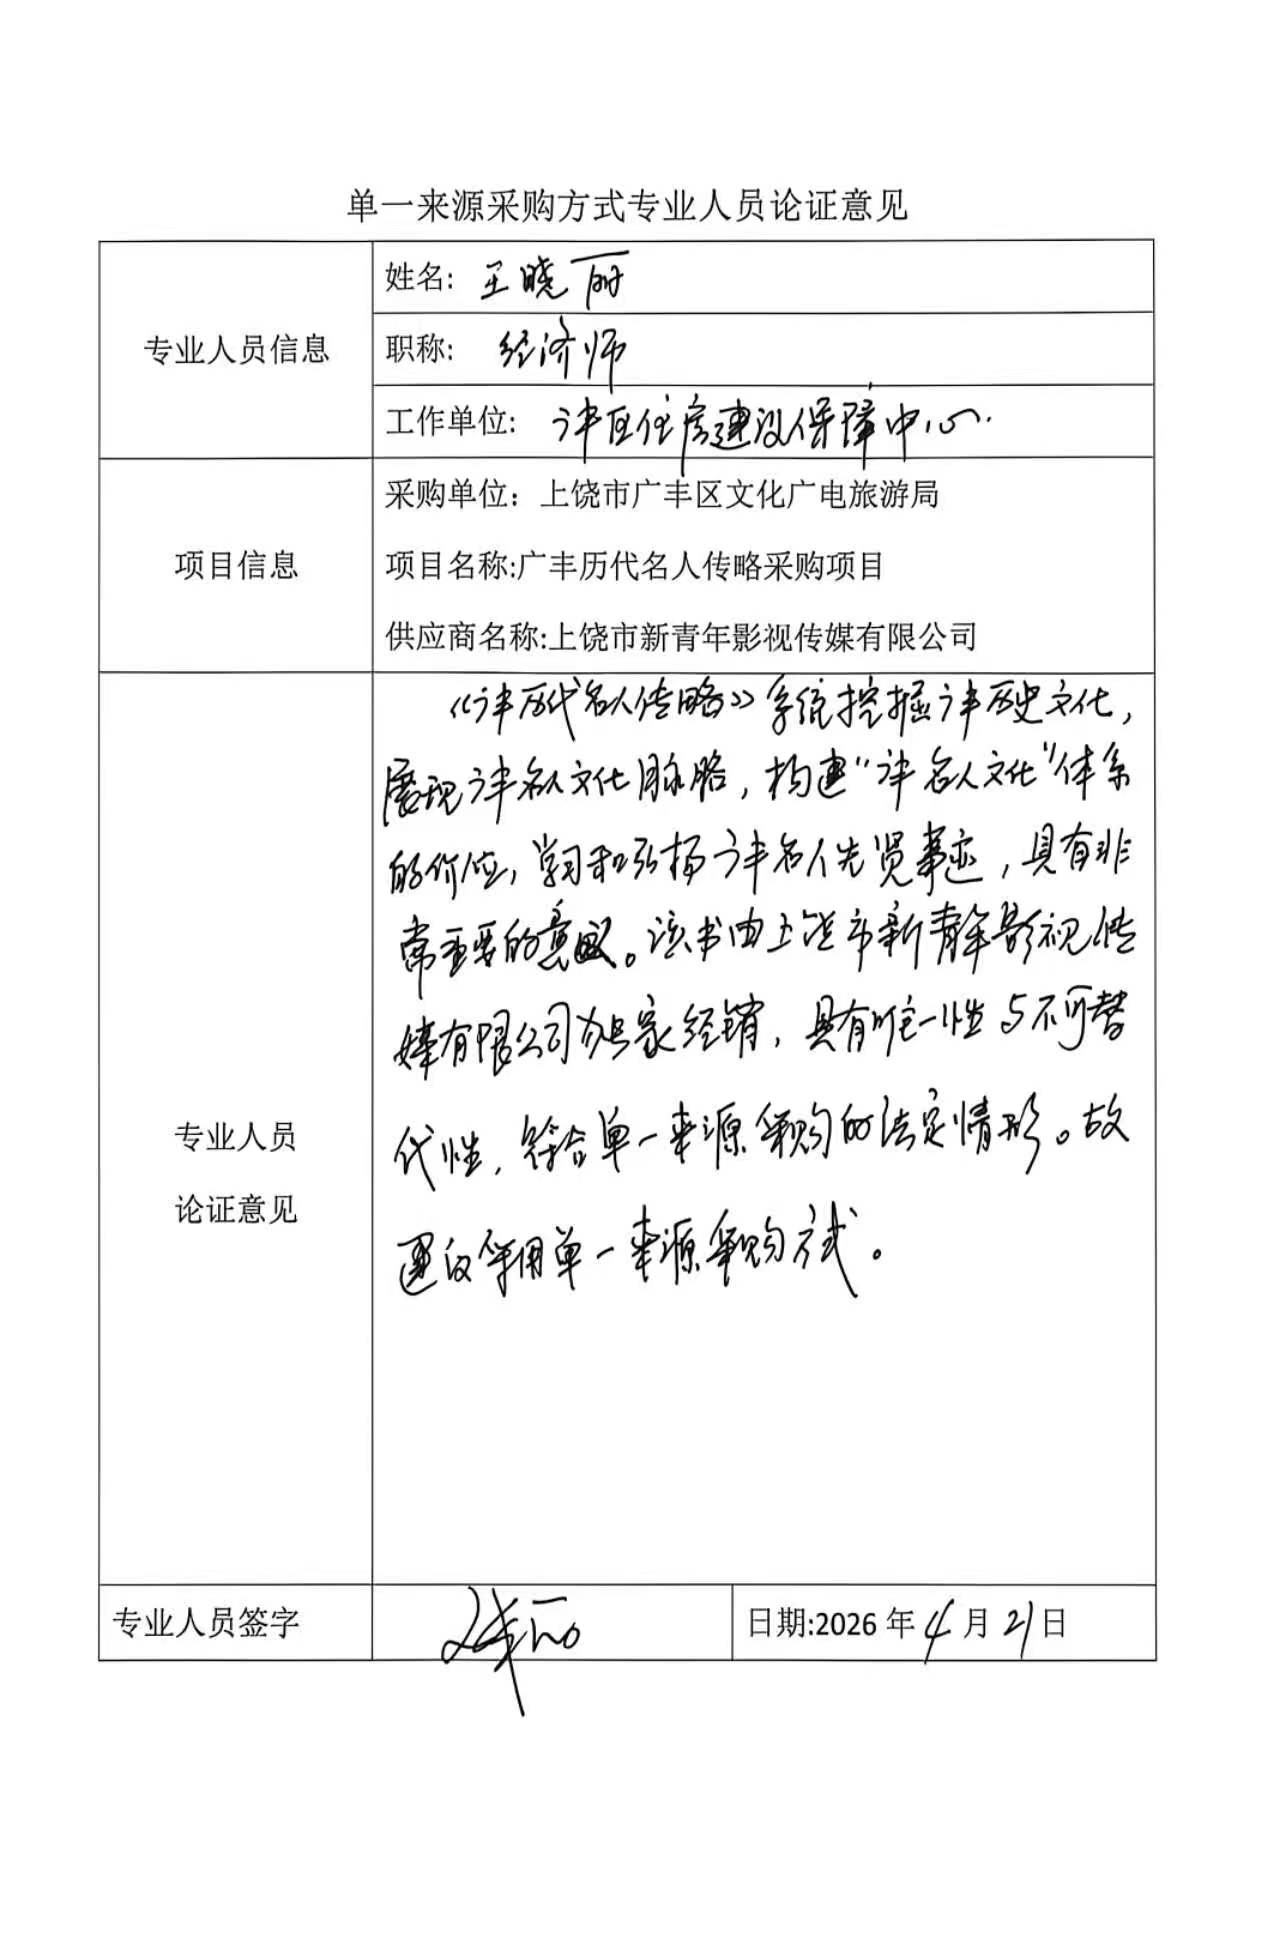 单一来源采购方式专业人员论证意见
专业人员信息
姓名: 王晓丽
职称: 经济师
工作单位: 广丰区住房建设保障中心.
项目信息
采购单位：上饶市广丰区文化广电旅游局
项目名称:广丰历代名人传略采购项目
供应商名称:上饶市新青年影视传媒有限公司
专业人员
论证意见
《广丰历代名人传略》系统挖掘广丰历史文化，
展现广丰名人文化脉络，构建“广丰名人文化”体系
的价值，学习和弘扬广丰名人先贤事迹，具有非
常重要的意义。该书由上饶市新青年影视传
媒有限公司独家经销，具有唯一性与不可替
代性，符合单一来源采购的法定情形。故
建议采用单一来源采购方式。
专业人员签字
日期:2026 年 4 月 21 日